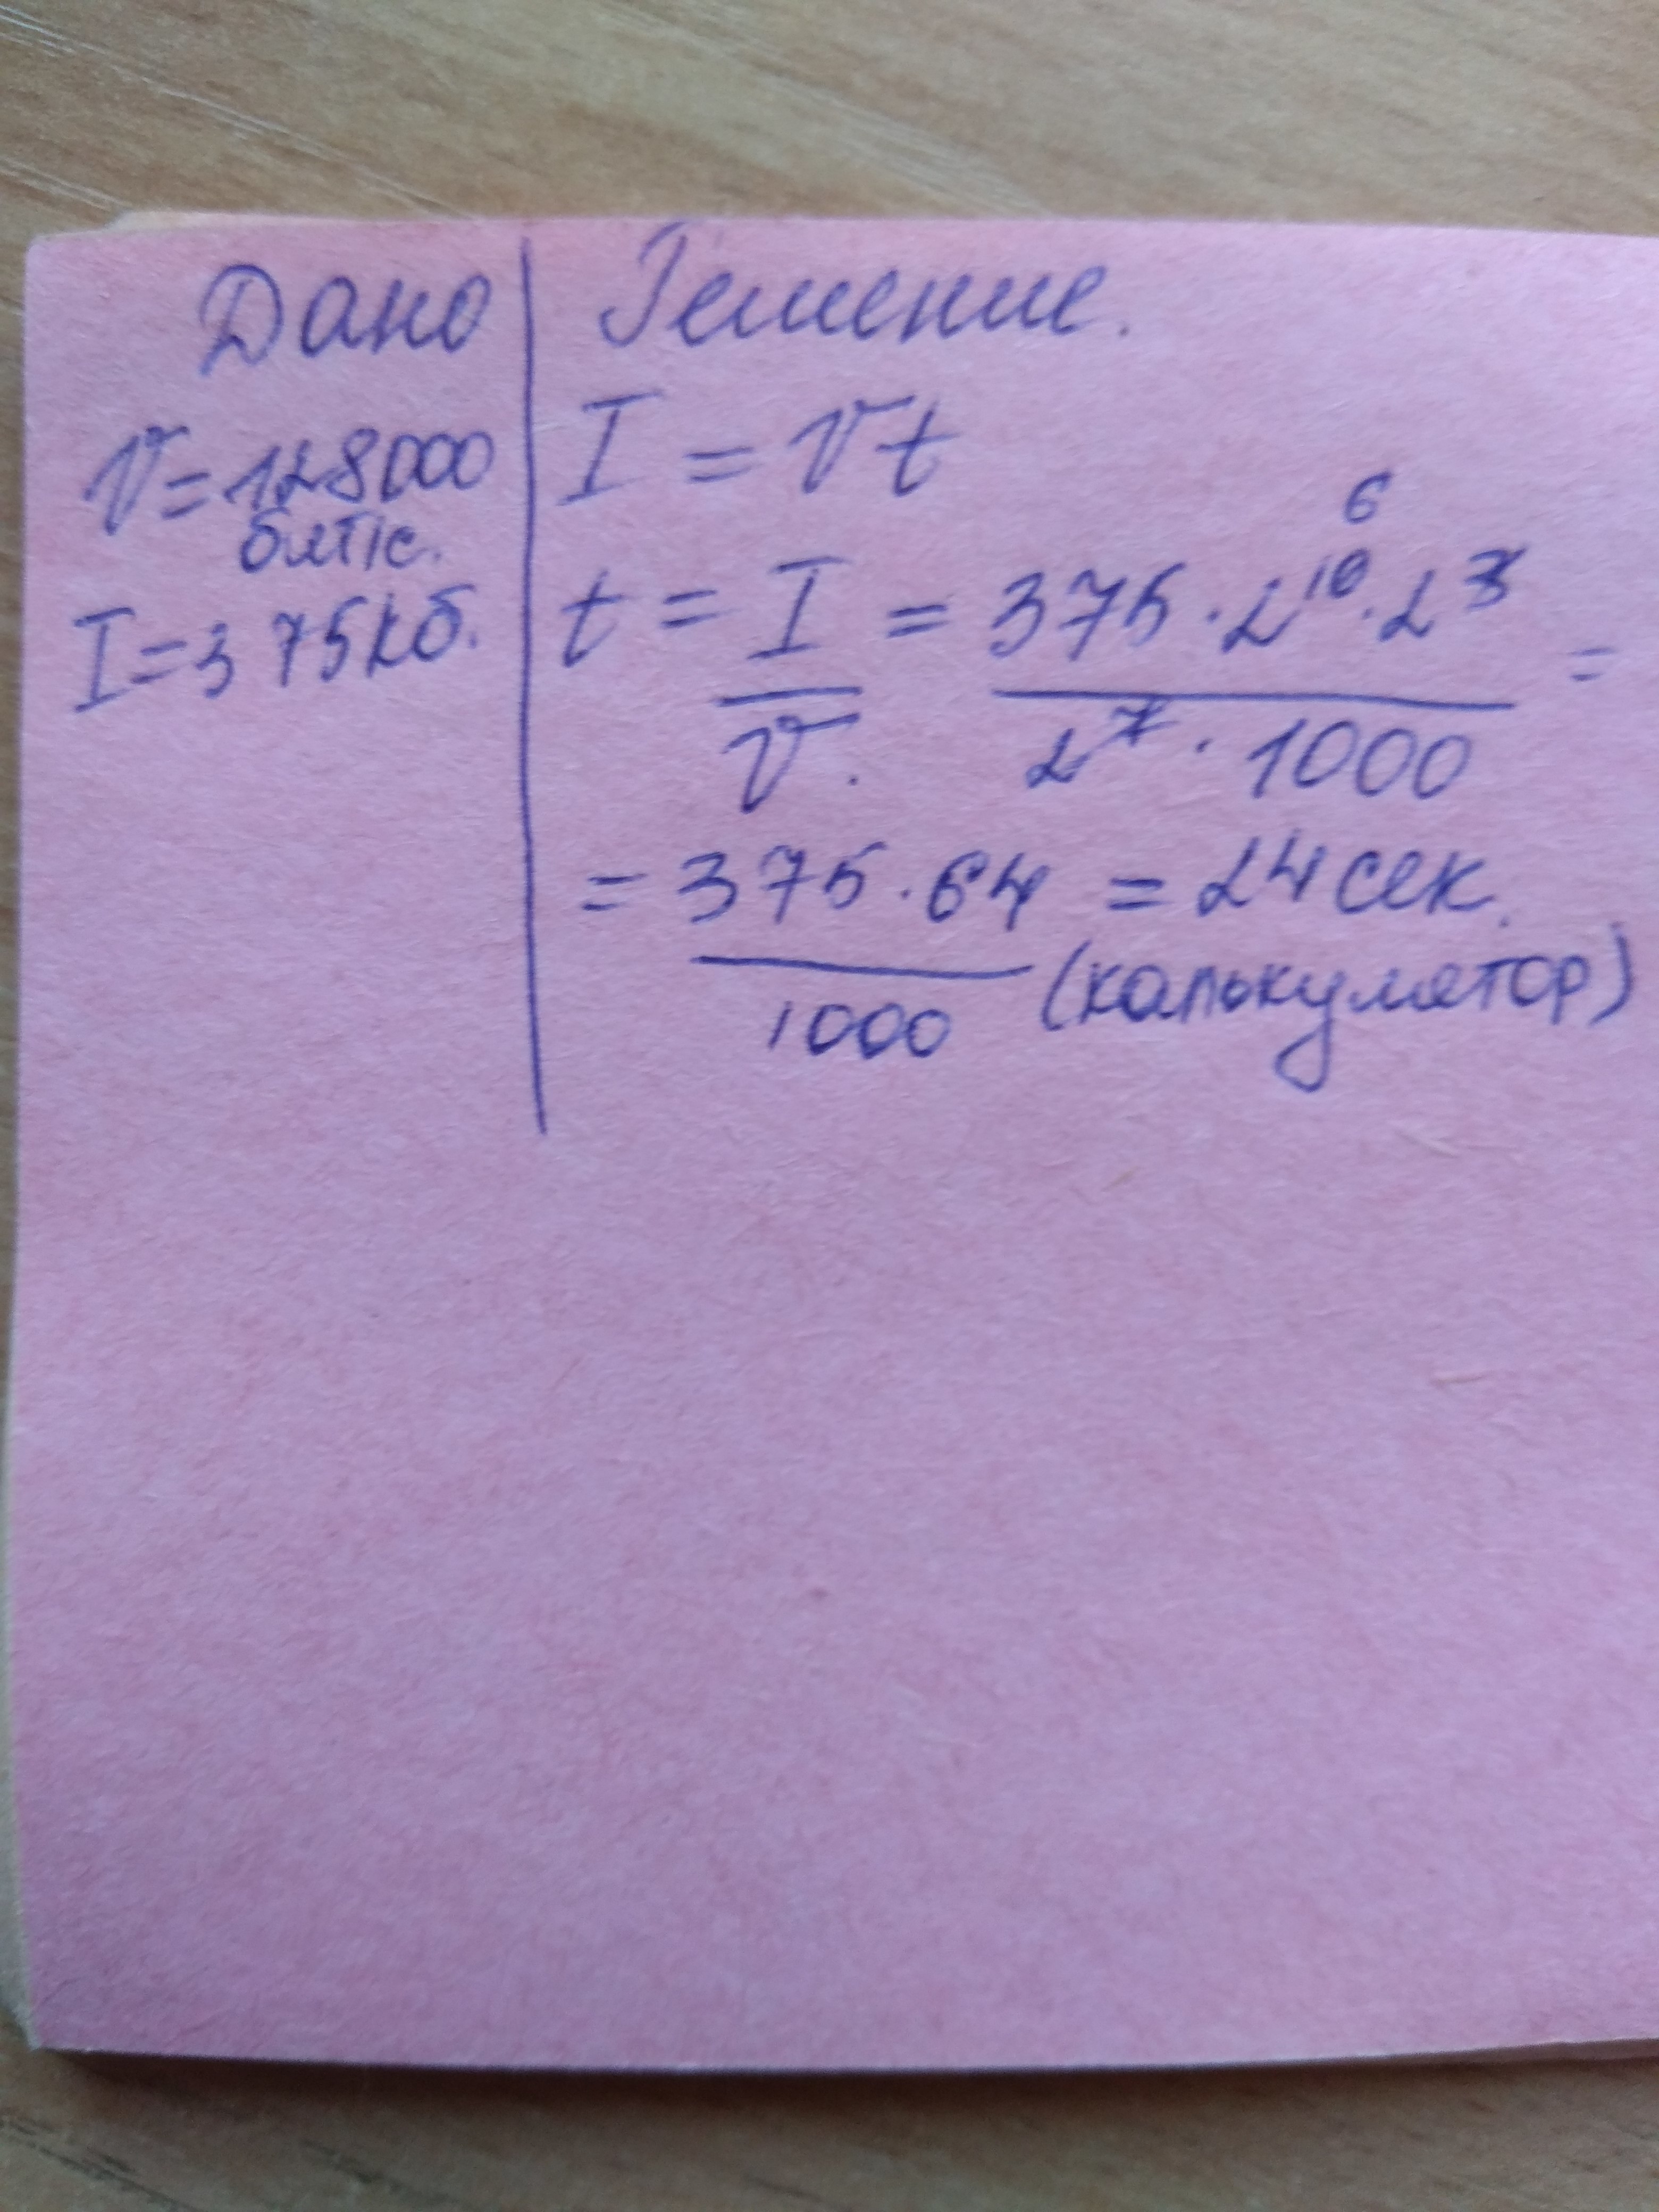 Дано
V = 128000
бит/с.
I = 375кб.
Решение.
I = Vt
t = I/V. = 375 · 2^10 · 2^3 / 2^7 · 1000 =
6
= 375 · 64 / 1000 = 24 сек.
(калькулятор)